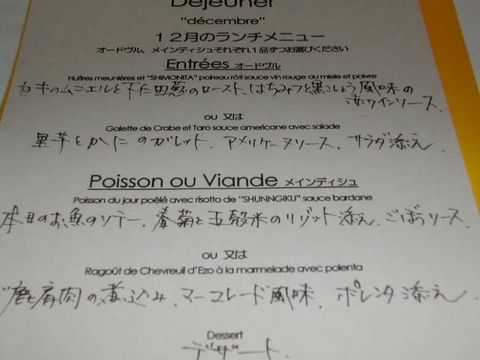 Déjeuner
"décembre"
12月のランチメニュー
オードヴル、メインディシュそれぞれ1品ずつお選びください
Entrées オードヴル
Huîtres meunières et "SHIMONITA" poireau rôti sauce vin rouge au miele et poivre
カキのムニエルと下仁田葱のロースト、はちみつと黒こしょう風味の
赤ワインソース
ou 又は
Galette de Crabe et Taro sauce americane avec salade
里芋とかにのガレット、アメリケーヌソース、サラダ添え
Poisson ou Viande メインディシュ
Poisson du jour poêlé avec risotto de "SHUNNGIKU" sauce bardane
本日のお魚のソテー、春菊と五穀米のリゾット添え、ごぼうソース
ou 又は
Ragoût de Chevreuil d'Ezo à la marmelade avec polenta
鹿肩肉の煮込み、マーマレード風味、ポレンタ添え
Dessert
デザート